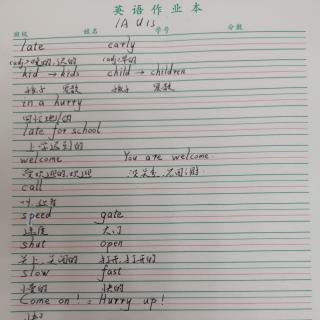 英语作业本
班级 姓名 学号 分数
1A U13
late early
(adj)晚的,迟的 (adj)早的
kid → kids child → children
孩子 复数 孩子 复数
in a hurry
late for school
上学迟到的
welcome You are welcome.
受欢迎的,欢迎 没关系,不用谢
call
speed gate
速度 大门
shut open
关上,关闭的 打开,打开的
slow fast
慢的 快的
Come on! = Hurry up!